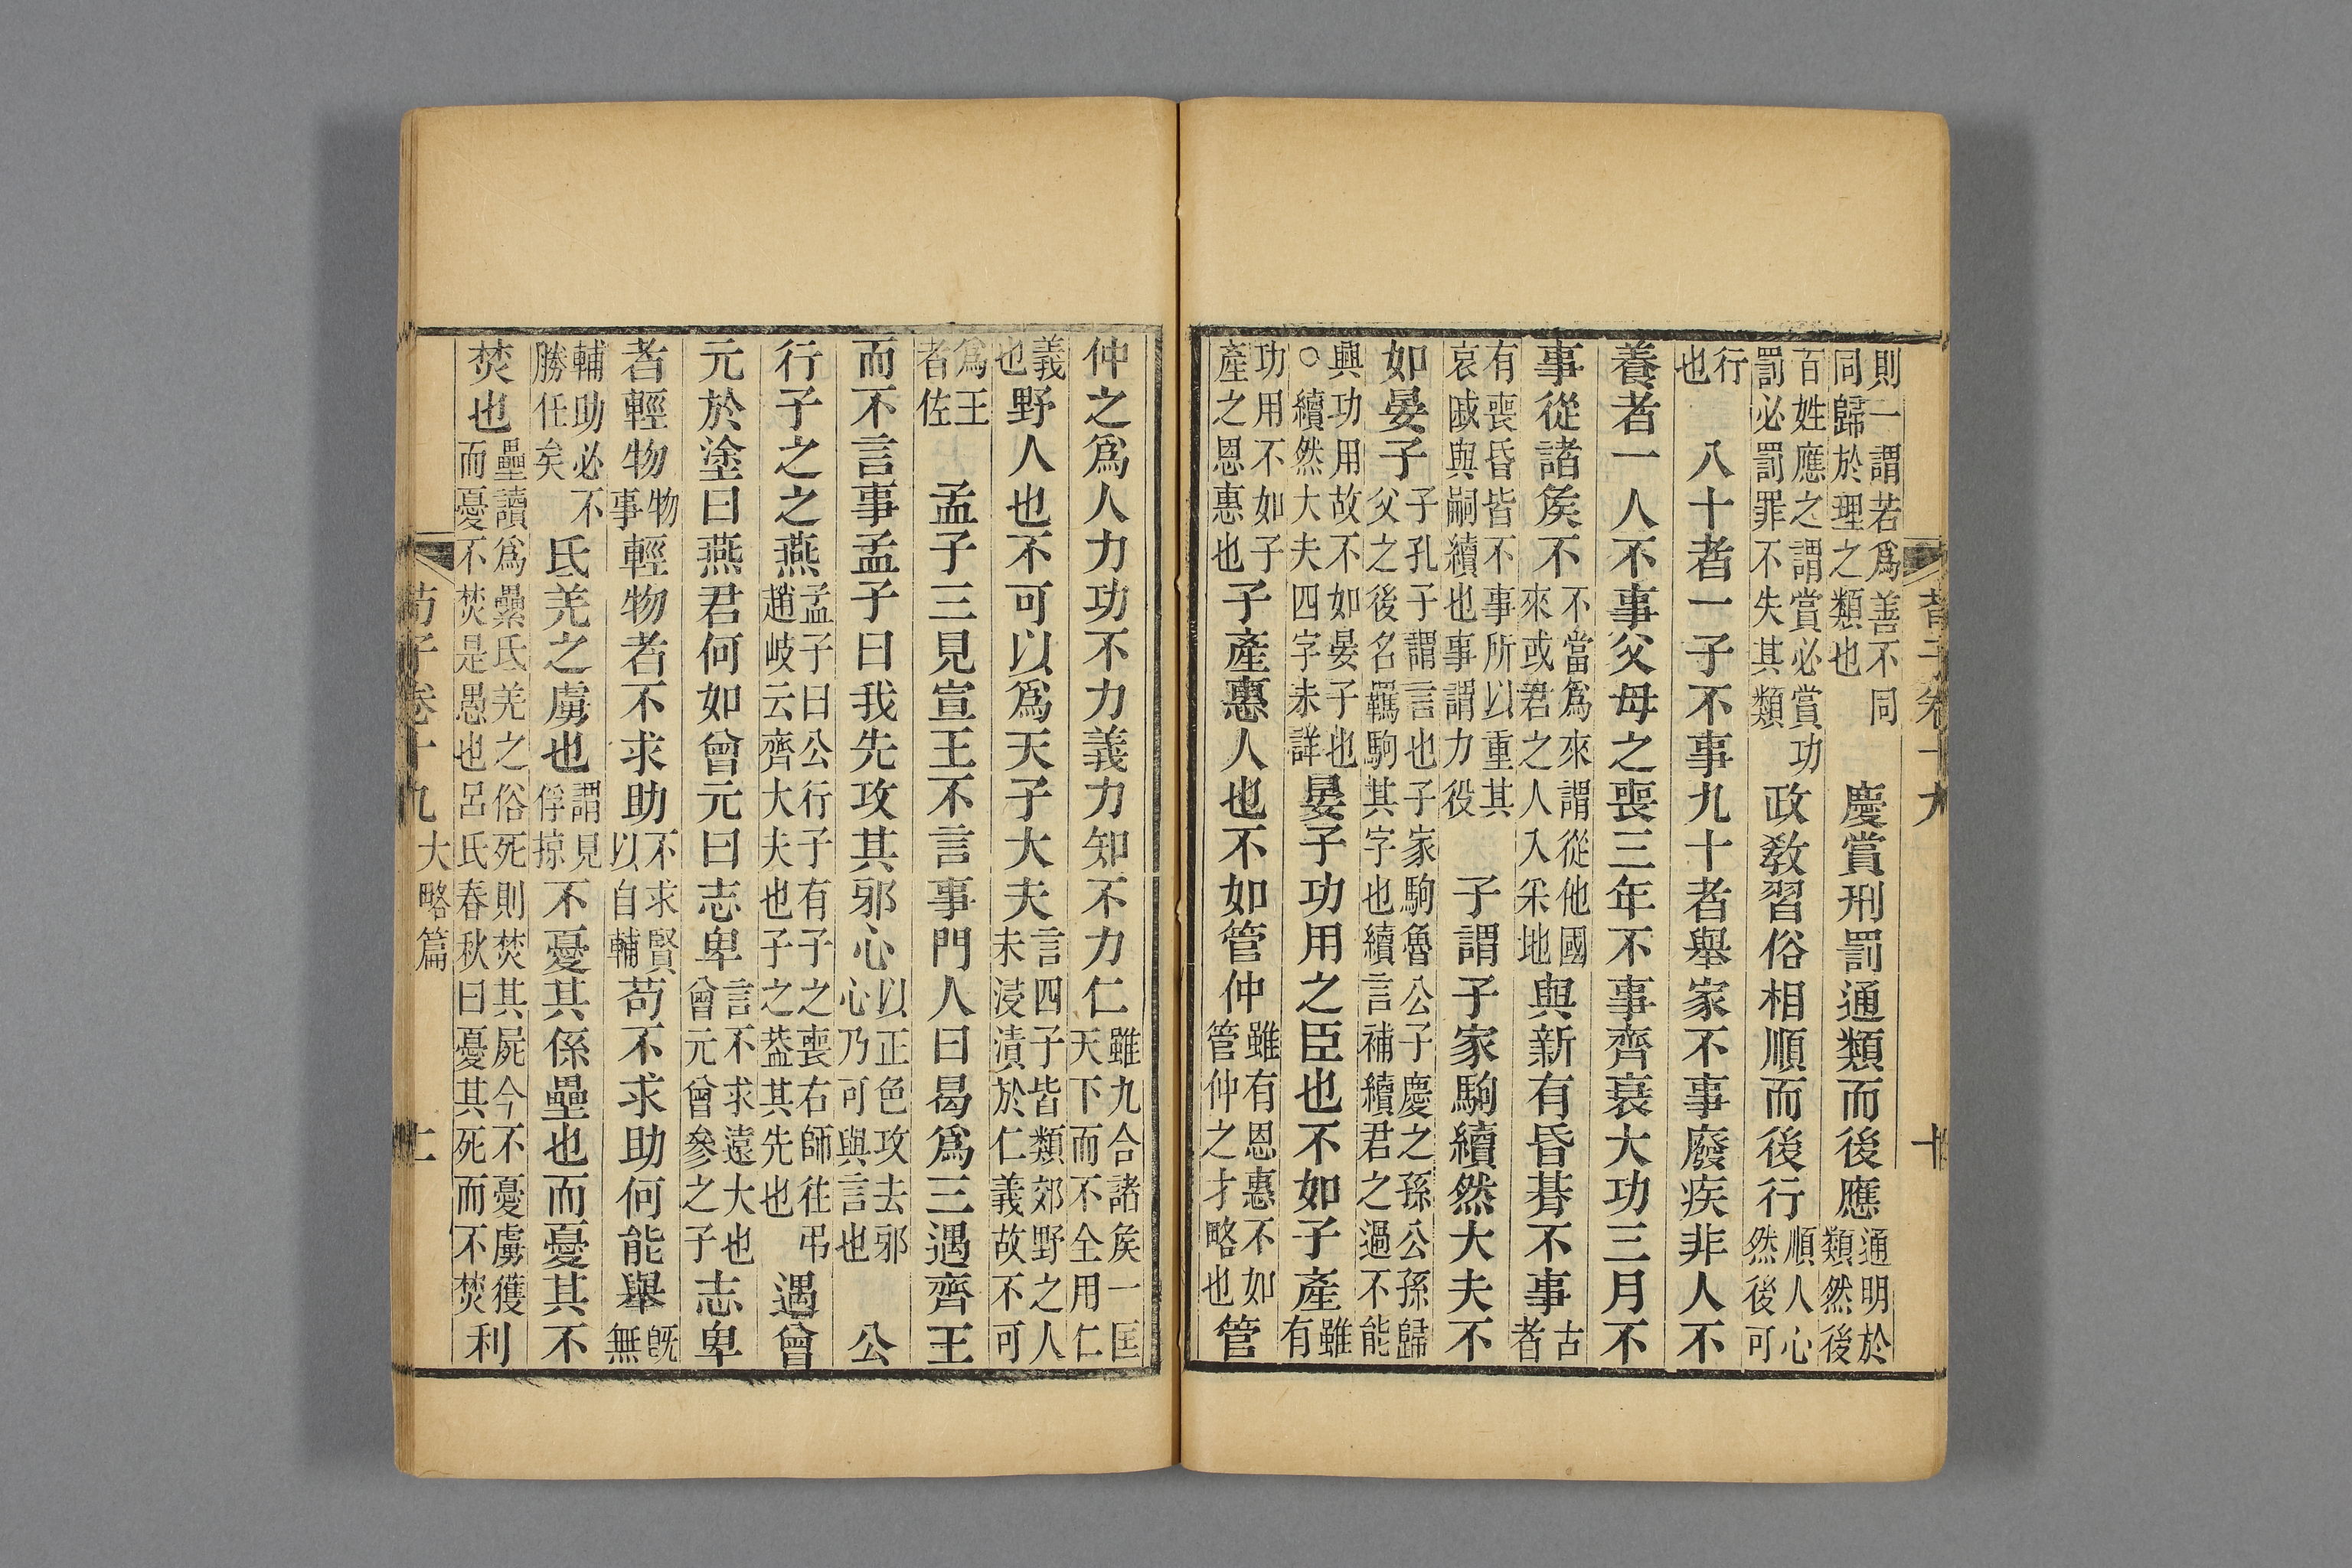 荀子卷十九 十
則一謂若爲善不同同歸於理之類也慶賞刑罰通類而後應通明於類然後
百姓應之謂賞必賞功罰必罰罪不失其類政教習俗相順而後行順人心然後可
行也 八十者一子不事九十者舉家不事廢疾非人不
養者一人不事父母之喪三年不事齊衰大功三月不
事從諸矦不不當爲來謂從他國來或君之人入采地與新有昏朞不事古者
有喪昏皆不事所以重其哀戚與嗣續也事謂力役 子謂子家駒續然大夫不
如晏子子孔子謂言也子家駒魯公子慶之孫公孫歸父之後名羈駒其字也續言補續君之過不能
興功用故不如晏子也○續然大夫四字未詳晏子功用之臣也不如子產雖有
功用不如子產之恩惠也子產惠人也不如管仲雖有恩惠不如管仲之才略也管
仲之爲人力功不力義力知不力仁雖九合諸矦一匡天下而不全用仁
義也野人也不可以爲天子大夫言四子皆類郊野之人未浸漬於仁義故不可
爲王者佐 孟子三見宣王不言事門人曰曷爲三遇齊王
而不言事孟子曰我先攻其邪心以正色攻去邪心乃可與言也 公
行子之之燕孟子曰公行子有子之喪右師往弔趙岐云齊大夫也子之葢其先也遇曾
元於塗曰燕君何如曾元曰志卑言不求遠大也曾元曾參之子志卑
者輕物物事輕物者不求助不求賢以自輔苟不求助何能舉既無
輔助必不勝任矣氐羌之虜也謂見俘掠不憂其係壘也而憂其不
焚也壘讀爲纍氐羌之俗死則焚其屍今不憂虜獲而憂不焚是愚也呂氏春秋曰憂其死而不焚利
荀子卷十九大略篇 十一